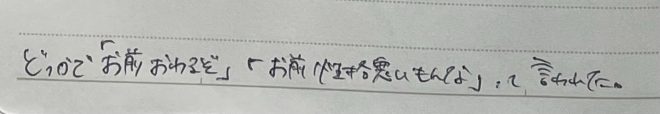 どっかで「お前おわるぞ」「お前性格悪いもんな」、って言われてた。